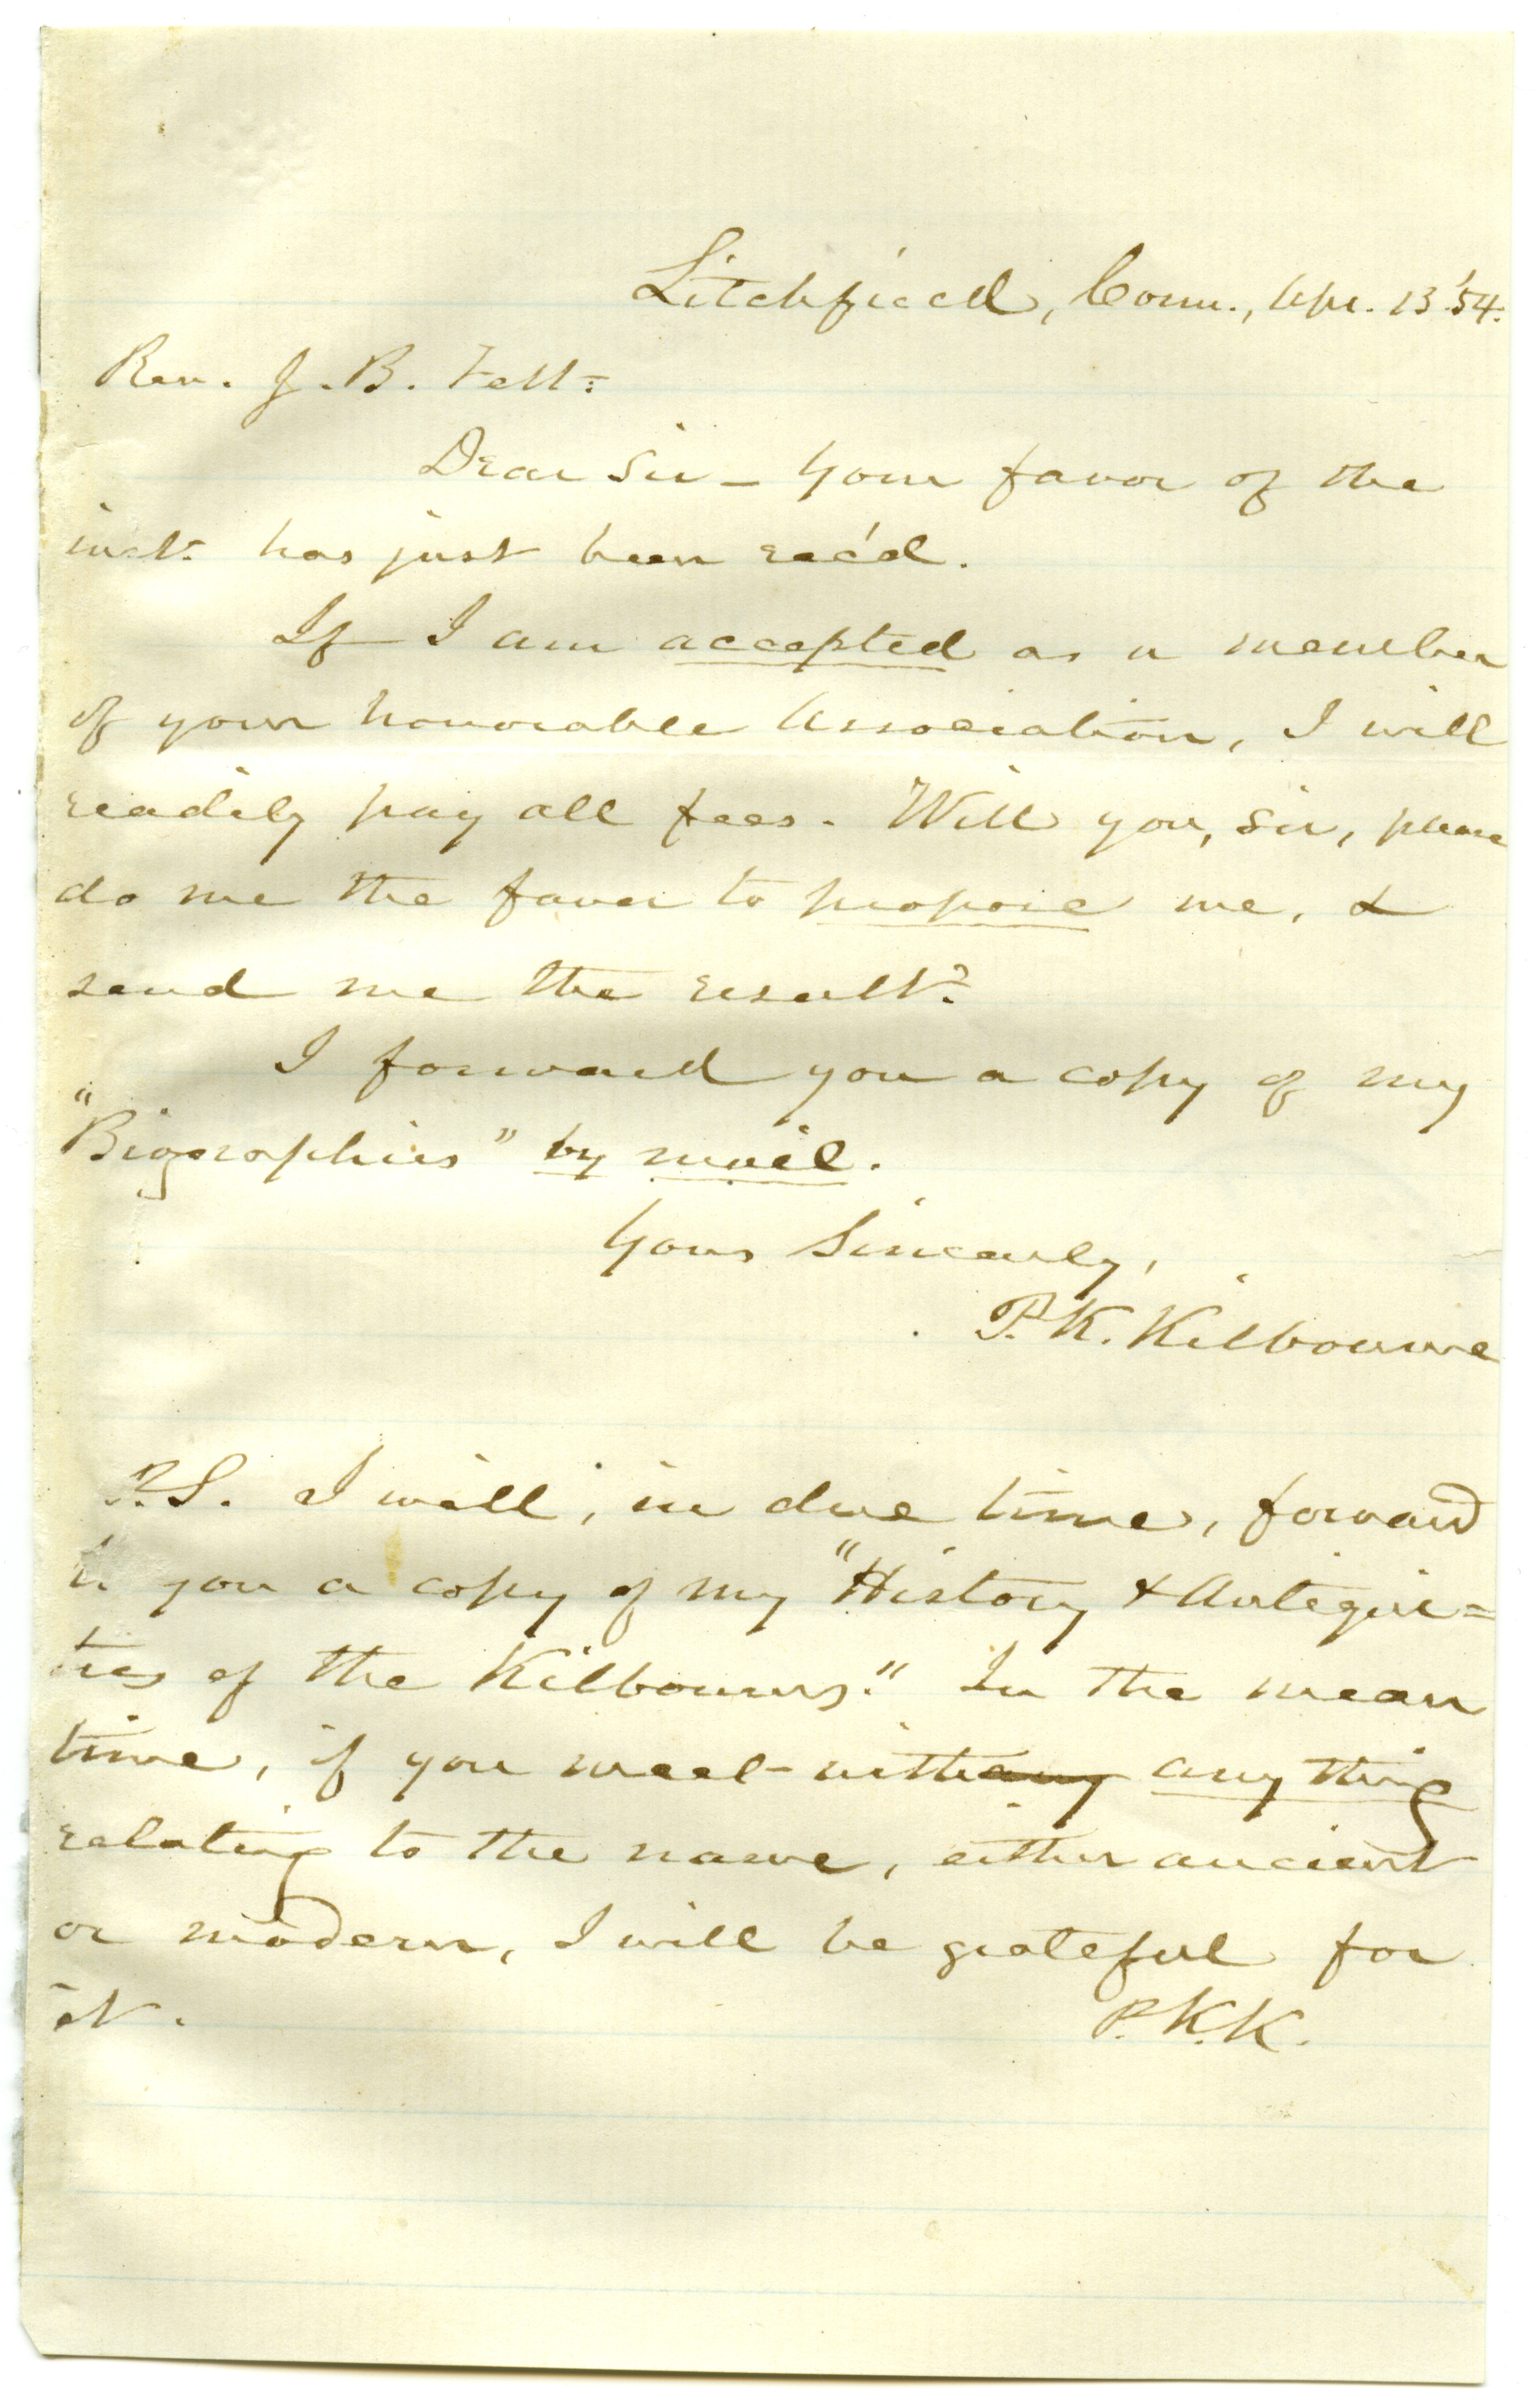 Litchfield, Conn., Apr. 13 '54.
Rev. J. B. Felt:
Dear Sir - Your favor of the
inst. has just been rec'd.
If I am accepted as a member
of your honorable Association, I will
readily pay all fees. Will you, Sir, please
do me the favor to propose me, &
send me the result?
I forward you a copy of my
"Biographies" by mail.
Yours Sincerely,
P. K. Kilbourne
P.S. I will, in due time, forward
to you a copy of my "History & Antiqui=
ties of the Kilbourns." In the mean
time, if you meet with any any thing
relating to the name, either ancient
or modern, I will be grateful for
it. P.K.K.